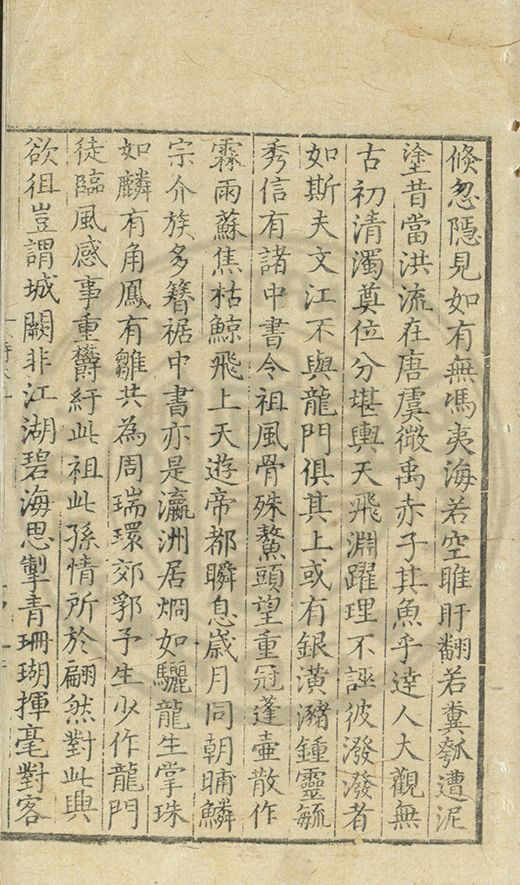 倐忽隱見如有無馮夷海若空睢盱翻若糞瓠遭泥
塗昔當洪流在唐虞微禹赤子其魚乎達人大觀無
古初清濁奠位分堪輿天飛淵躍理不誣彼潑潑者
如斯夫文江不與龍門俱其上或有銀潢瀦鍾靈毓
秀信有諸中書令祖風骨殊鰲頭望重冠蓬壺散作
霖雨蘇焦枯鯨飛上天遊帝都瞬息歲月同朝晡鱗
宗介族多簪裾中書亦是瀛洲居烱如驪龍生掌珠
如麟有角鳳有雛共為周瑞環郊郛予生少作龍門
徒臨風感事重欝紆此祖此孫情所於翩然對此興
欲徂豈謂城闕非江湖碧海思掣青珊瑚揮毫對客